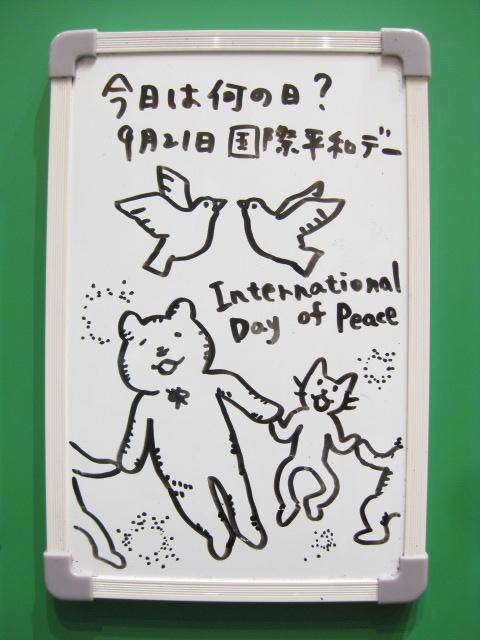 今日は何の日?
9月21日 国際平和デー
International
Day of Peace